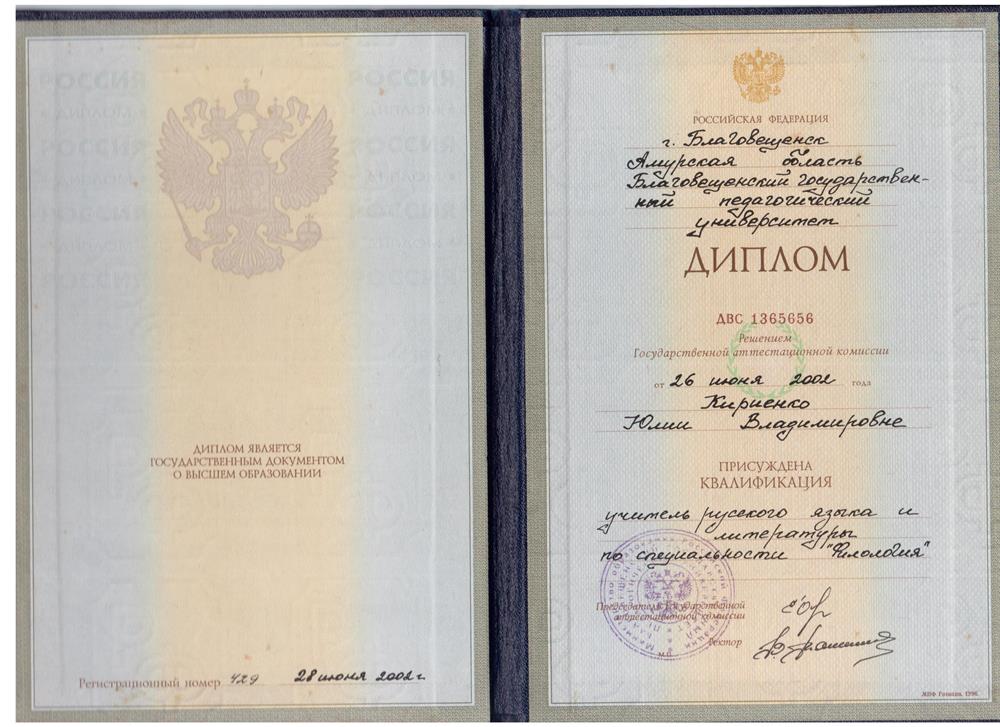 ДИПЛОМ ЯВЛЯЕТСЯ
ГОСУДАРСТВЕННЫМ ДОКУМЕНТОМ
О ВЫСШЕМ ОБРАЗОВАНИИ
Регистрационный номер 429 28 июня 2002 г.
РОССИЙСКАЯ ФЕДЕРАЦИЯ
г. Благовещенск
Амурская область
Благовещенский государствен-
ный педагогический
университет
ДИПЛОМ
ДВС 1365656
Решением
Государственной аттестационной комиссии
от 26 июня 2002 года
Кириенко
Юлии Владимировне
ПРИСУЖДЕНА
КВАЛИФИКАЦИЯ
учитель русского языка и
литературы
по специальности "Филология"
Председатель Государственной
аттестационной комиссии
Ректор
М.П.
МПФ Гознака. 1996.